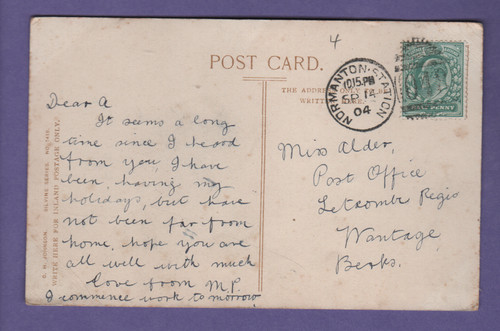 4
POST CARD.
THE ADDRESS ONLY
WRITTEN HERE.
NORMANTON·STATION
10.15.PM
SP 14
04
PENNY
Dear A
It seems a long
time since I heard
from you, I have
been having my
holidays, but have
not been far from
home, hope you are
all well with much
love from M.P.
I commence work to-morrow
Miss Alder,
Post Office
Letcombe Regis
Wantage
Berks.
WRITE HERE FOR INLAND POSTAGE ONLY.